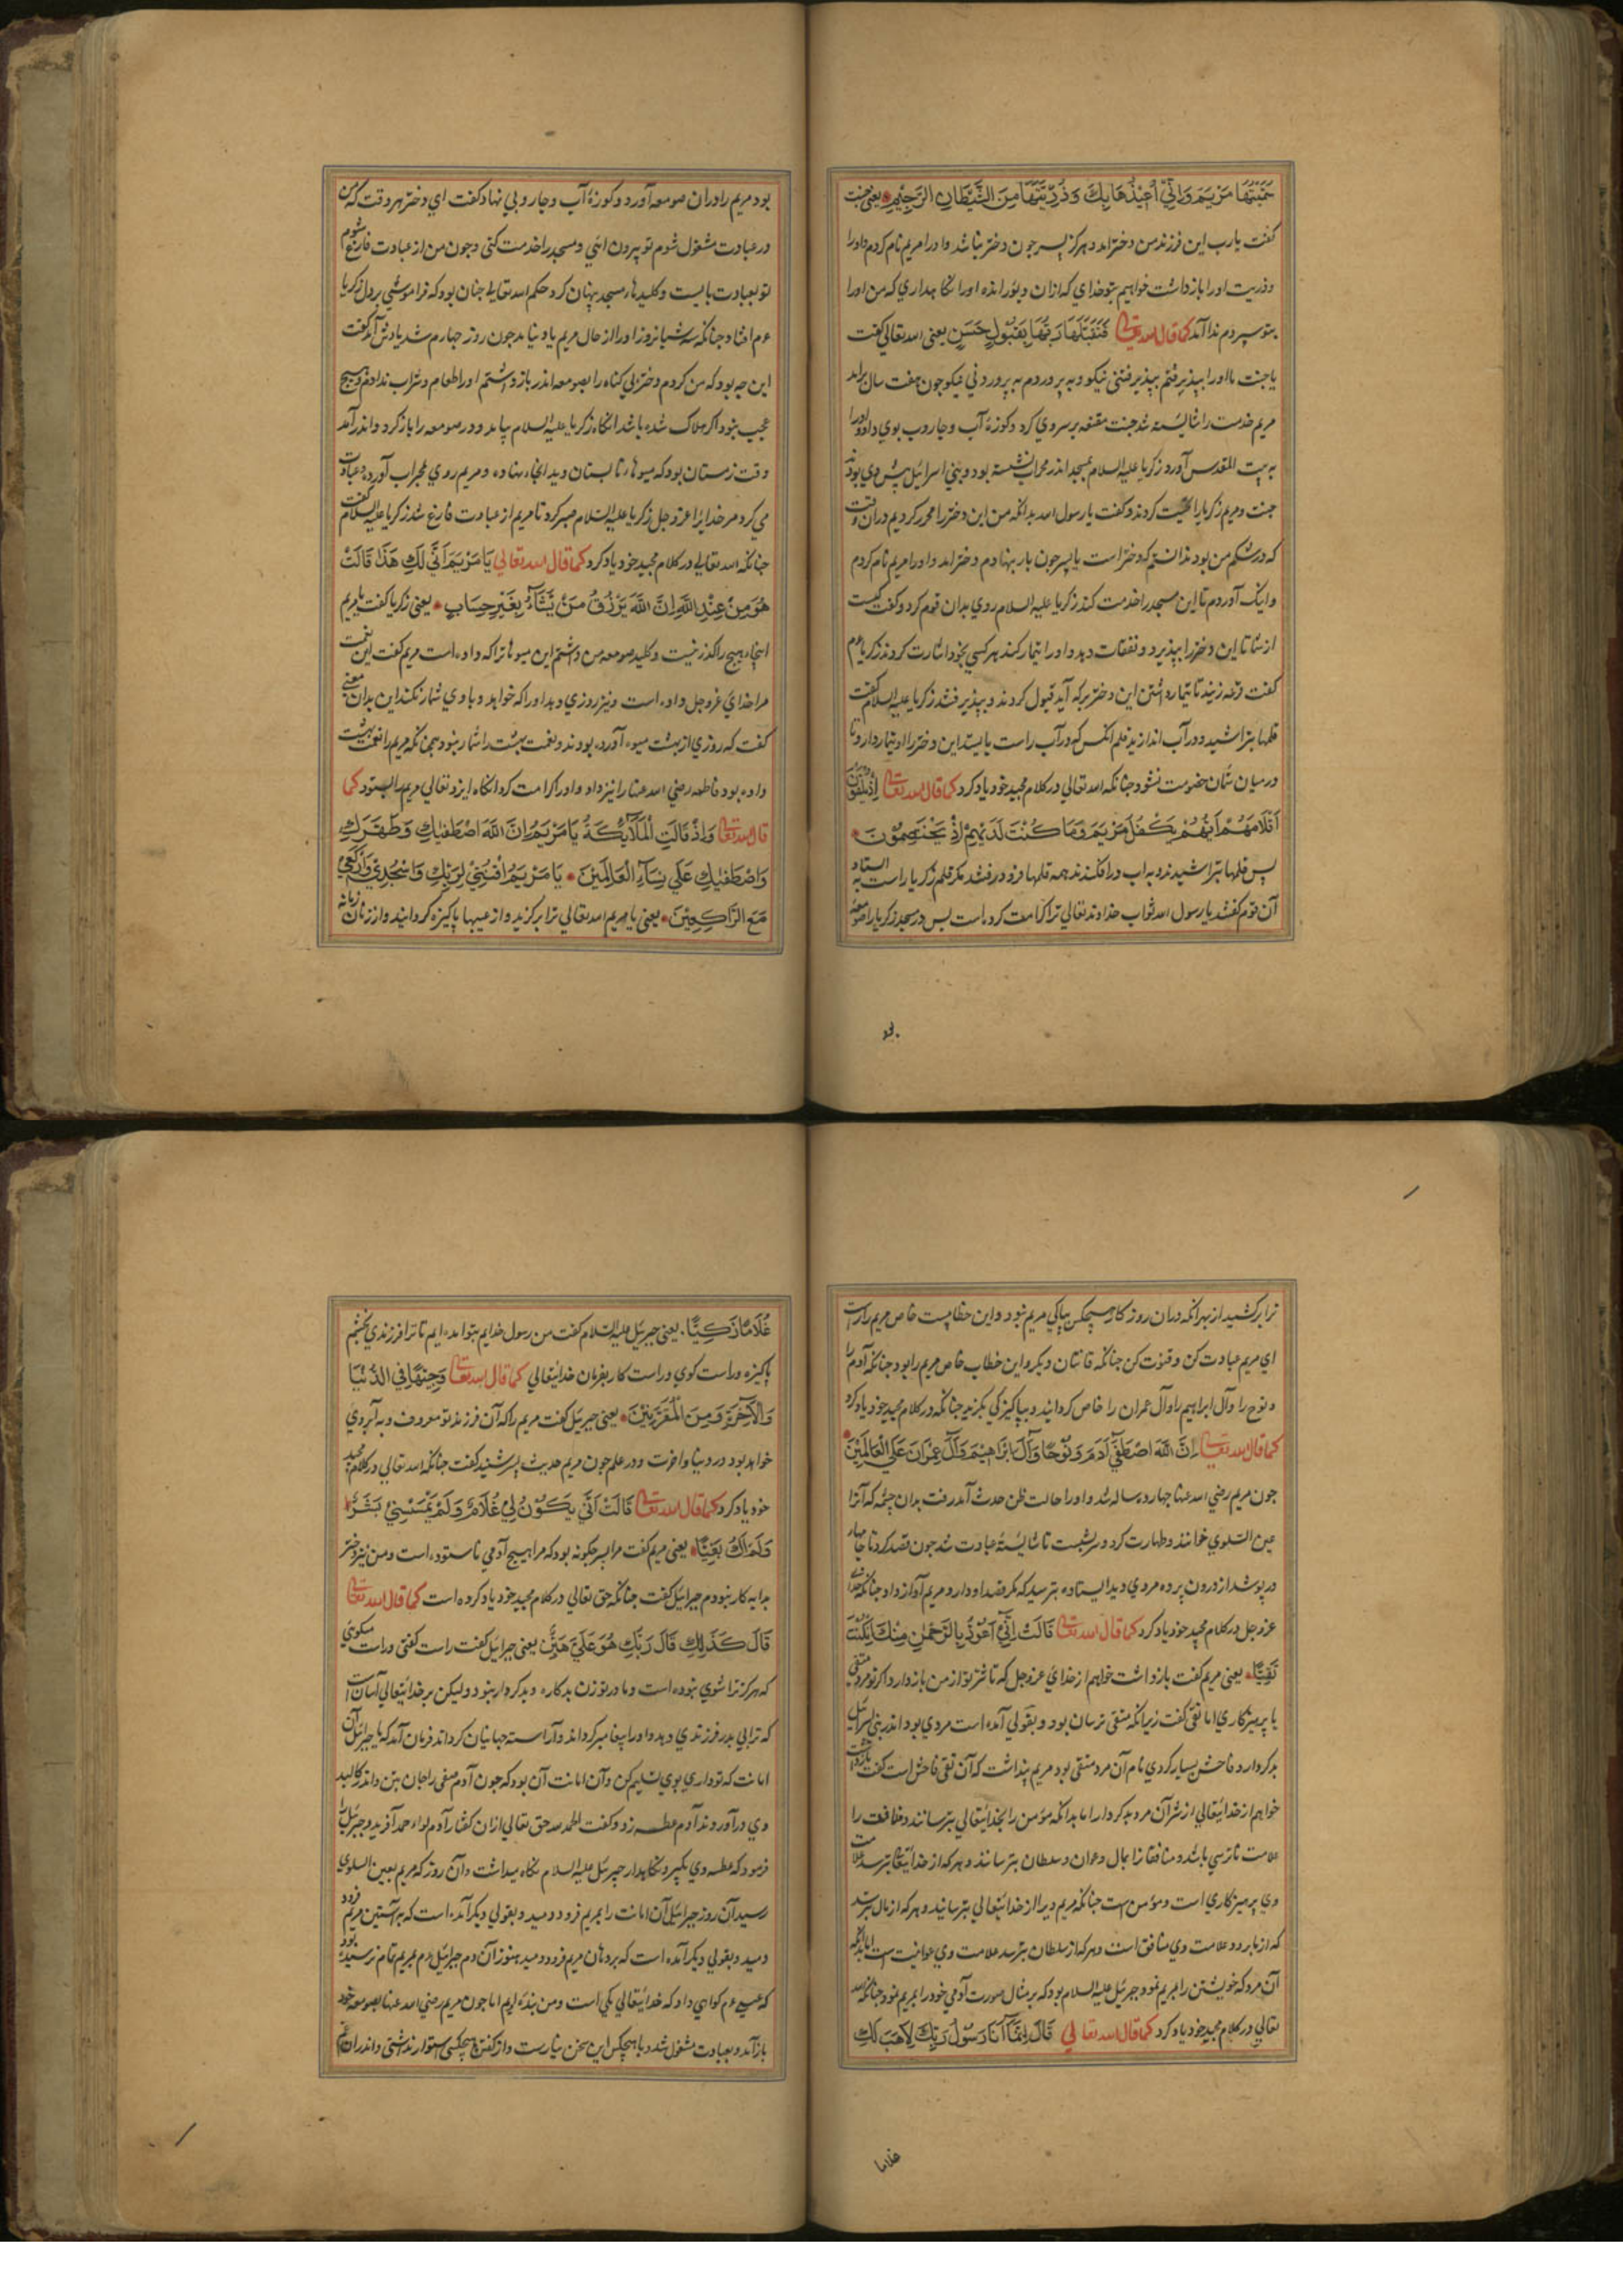 سَمَّيْتُهَا مَرْيَمَ وَاِنِّي اُعِيْذُهَا بِكَ وَذُرِّيَّتَهَا مِنَ الشَّيْطَانِ الرَّجِيْمِ يعني حنت
كفت يارب اين فرزند من دختر امد و هركز پسر جون دختر نباشد و اورا مريم نام كردم و اورا
و ذريت اورا بازداشت خواهيم بتو خداي كه ازان ديو رانده اورا نكاه داري كه من اورا
بتو سپردم ندا آمد كما قال الله تعالى فَتَقَبَّلَهَا رَبُّهَا بِقَبُوْلٍ حَسَنٍ يعني الله تعالي كفت
يا حنت ما اورا بپذيرفتم بپذيرفتني نيكو و بپروردم به پروردني نيكو جون هفت سال برامد
مريم خدمت را شايسته شد حنت مقنعه بر سر وي كرد و كوزهٔ آب و جاروب بوي داد و اورا
به بيت المقدس آورد زكريا عليه السلام بمسجد اندر محراب نشسته بود و بني اسرائيل پيش وي بودند
حنت و مريم زكريا را تحيت كردند و كفت يا رسول الله بدانكه من اين دختر را محرر كرديم دران وقت
كه در شكم من بود ندانستم كه دختر است يا پسر جون بار بنهادم دختر امد و اورا مريم نام كردم
و اينك آوردم تا اين مسجد را خدمت كند زكريا عليه السلام روي بدان قوم كرد و كفت كيست
از شما تا اين دختر را بپذيرد و نفقات دهد و اورا تيمار كند هر كسي بخود اشارت كردند زكريا عم
كفت قرعه زنيد تا تيمار داشتن اين دختر بر كه آيد قبول كردند و بپذيرفتند زكريا عليه السلام كفت
قلمها بتراشيد و در آب اندازيد قلم انكس كه در آب راست بايستد اين دختر را او تيمار دارد تا
در ميان شمان خصومت نشود جنانكه الله تعالي در كلام مجيد خود ياد كرد كما قال الله تعالى اِذْ يُلْقُوْنَ
اَقْلَامَهُمْ اَيُّهُمْ يَكْفُلُ مَرْيَمَ وَمَا كُنْتَ لَدَيْهِمْ اِذْ يَخْتَصِمُوْنَ
پس قلمها بتراشيدند و به اب در افكندند همه قلمها فرود رفتند مكر قلم زكريا راست به استاد
آن قوم كفتند يا رسول الله ثواب خداوند تعالي ترا كرامت كرده است پس در مسجد زكريا را صومعه
بود
بود مريم را دران صومعه آورد و كوزهٔ آب و جاروبي نهاد كفت اي دختر هر وقت كه من
در عبادت مشغول شوم تو بيرون ائي و مسجد را خدمت كني و جون من از عبادت فارغ شوم
تو بعبادت بايست و كليدها مسجد پنهان كرد حكم الله تعالي جنان بود كه فراموشي بر دل زكريا
عم افتاد جنانكه سه شبانروز اورا از حال مريم ياد نيامد جون روز جهارم شد يادش آمد كفت
اين چه بود كه من كردم دختر بي كناه را بصومعه اندر باز داشتم اورا طعام و شراب ندادم و هيج
عجب نبود اكر هلاك شده باشد انكاه زكريا عليه السلام بيامد و در صومعه را باز كرد و اندر آمد
وقت زمستان بود كه ميوهاء تابستان ديد انجا بنهاده و مريم روي بمحراب آورده و عبادت
مي كرد مر خدايرا عز و جل زكريا عليه السلام صبر كرد تا مريم از عبادت فارغ شد زكريا عليه السلام كفت
جنانكه الله تعالي در كلام مجيد خود ياد كرد كما قال الله تعالي يَا مَرْيَمُ اَنّٰى لَكِ هٰذَا قَالَتْ
هُوَ مِنْ عِنْدِ اللّٰهِ اِنَّ اللّٰهَ يَرْزُقُ مَنْ يَّشَآءُ بِغَيْرِ حِسَابٍ يعني زكريا كفت يا مريم
اينجا هيج را كذر نيست و كليد صومعه من داشتم اين ميوها ترا كه داده است مريم كفت اين نعمت
مرا خداي عز و جل داده است و نيز روزي دهد اورا كه خواهد و با وي شمار نكند اين بدان معني
كفت كه روزي از بهشت ميوه آورده بودند و نعمت بهشت را شمار نبود همجنانكه مريم را نعمت بهشت
داده بود فاطمه رضي الله عنها را نيز داد و اورا كرامت كرد انكاه ايزد تعالي مريم را بستود كما
قال الله تعالى وَاِذْ قَالَتِ الْمَلٰٓئِكَةُ يَا مَرْيَمُ اِنَّ اللّٰهَ اصْطَفٰيكِ وَطَهَّرَكِ
وَاصْطَفٰيكِ عَلٰي نِسَآءِ الْعَالَمِيْنَ يَا مَرْيَمُ اقْنُتِيْ لِرَبِّكِ وَاسْجُدِيْ وَارْكَعِيْ
مَعَ الرَّاكِعِيْنَ يعني يا مريم الله تعالي ترا بركزيد و از عيبها پاكيزه كردانيد و از زنان زمانه
ترا بركشيد از بهر انكه دران روزكار هيچكس بپاكي مريم نبود و اين خطابيست خاص مريم را است
اي مريم عبادت كن و قنوت كن جنانكه قانتان ديكر و اين خطاب خاص مريم را بود جنانكه آدم را
و نوح را و آل ابراهيم را و آل عمران را خاص كردانيد و بپاكيزكي بكزيد جنانكه در كلام مجيد خود ياد كرد
كما قال الله تعالى اِنَّ اللّٰهَ اصْطَفٰٓي اٰدَمَ وَنُوْحًا وَاٰلَ اِبْرَاهِيْمَ وَاٰلَ عِمْرَانَ عَلَي الْعَالَمِيْنَ
جون مريم رضي الله عنها جهارده ساله شد و اورا حالت ظن حدث آمد رفت بدان چشمه كه آنرا
عين السلوي خوانند و طهارت كرد و سر بشست تا شايستهٔ عبادت شد جون قصد كرد تا جامها
در پوشد از درون پرده مردي ديد ايستاده بترسيد كه مكر قصد او دارد مريم آواز داد جنانكه خداي
عز و جل در كلام مجيد خود ياد كرد كما قال الله تعالى قَالَتْ اِنِّيْٓ اَعُوْذُ بِالرَّحْمٰنِ مِنْكَ اِنْ كُنْتَ
تَقِيًّا يعني مريم كفت بازداشت خواهم از خداي عز و جل كه تا شر تو از من باز دارد اكر تو مرد متقي
يا پرهيزكاري اما تقي كفت زيرانكه متقي ترسان بود و بقولي آمده است مردي بود اندر بني اسرائيل
بدكردار و فاحش بسيار كردي نام آن مرد متقي بود مريم پنداشت كه آن تقي فاحش است كفت بازداشت
خواهم از خدايتعالي از شر آن مرد بدكردار اما بدانكه مؤمن را بخدايتعالي بترسانند و منافقت را
علامت ناترسي باشد و منافقانرا بمال و عوان و سلطان بترسانند و هركه از خدايتعالي بترسد علامت
وي پرهيزكاري است و مؤمن هست جنانكه مريم ديرا از خدايتعالي بترسانيد و هركه از مال بترسد
كه از ما برود علامت وي منافق است و هركه از سلطان بترسد علامت وي عوانيت است اما بدانكه
آن مرد كه خويشتن را بمريم نمود جبرئيل عليه السلام بود كه بر مثال صورت آدمي خود را بمريم نمود جنانكه الله
تعالي در كلام مجيد خود ياد كرد كما قال الله تعالي قَالَ اِنَّمَآ اَنَا رَسُوْلُ رَبِّكِ لِاَهَبَ لَكِ
غلاما
غُلَامًا زَكِيًّا يعني جبرئيل عليه السلام كفت من رسول خدايم بتو امده ايم تا ترا فرزندي بخشم
پاكيزه و راست كوي و راست كار بفرمان خدايتعالي كما قال الله تعالى وَجِيْهًا فِي الدُّنْيَا
وَالْاٰخِرَةِ وَمِنَ الْمُقَرَّبِيْنَ يعني جبرئيل كفت مريم را كه آن فرزند تو معروف و به آبروي
خواهد بود در دنيا و اخرت و در علم جون مريم حديث پسر شنيد كفت جنانكه الله تعالي در كلام مجيد
خود ياد كرد كما قال الله تعالى قَالَتْ اَنّٰي يَكُوْنُ لِيْ غُلَامٌ وَّلَمْ يَمْسَسْنِيْ بَشَرٌ
وَّلَمْ اَكُ بَغِيًّا يعني مريم كفت مرا پسر جكونه بود كه مرا هيج آدمي ناستوده است و من نيز دختر
بدايه كار نبودم جبرائيل كفت جنانكه حق تعالي در كلام مجيد خود ياد كرده است كما قال الله تعالى
قَالَ كَذٰلِكِ قَالَ رَبُّكِ هُوَ عَلَيَّ هَيِّنٌ يعني جبرائيل كفت راست كفتي و راست ميكوئي
كه هركز ترا شوي نبوده است و مادر تو زن بدكاره و بدكردار نبود و ليكن بر خدايتعالي آسان است
كه ترا بي پدر فرزندي دهد و اورا پيغامبر كرداند و آراسته جهانيان كرداند فرمان آمد كه يا جبرائيل آن
امانت كه تو داري بوي تسليم كن و آن امانت آن بود كه جون آدم صفي را جان بتن و اندر كالبد
وي در آوردند آدم عطسه زد و كفت الحمد لله حق تعالي ازان كفتار آدم لواء حمد آفريد و جبرئيل را
فرمود كه عطسه وي بكير و نكاهدار جبرئيل عليه السلام نكاه ميداشت و آن روز كه مريم بعين السلوي
رسيد آن روز جبرائيل آن امانت را بمريم فرو دميد و بقولي ديكر آمده است كه به آستين مريم فرود
دميد و بقولي ديكر آمده است كه بر دهان مريم فرو دميد هنوز آن دم جبرائيل دم بمريم تمام نرسيده بود
كه عيسي عم كواهي داد كه خدايتعالي يكي است و من بندهٔ اويم اما جون مريم رضي الله عنها بصومعه خود
باز آمد و بعبادت مشغول شد و با هيچكس اين سخن نيارست و از كفتن هيچكس استوار نداشتي و اندران